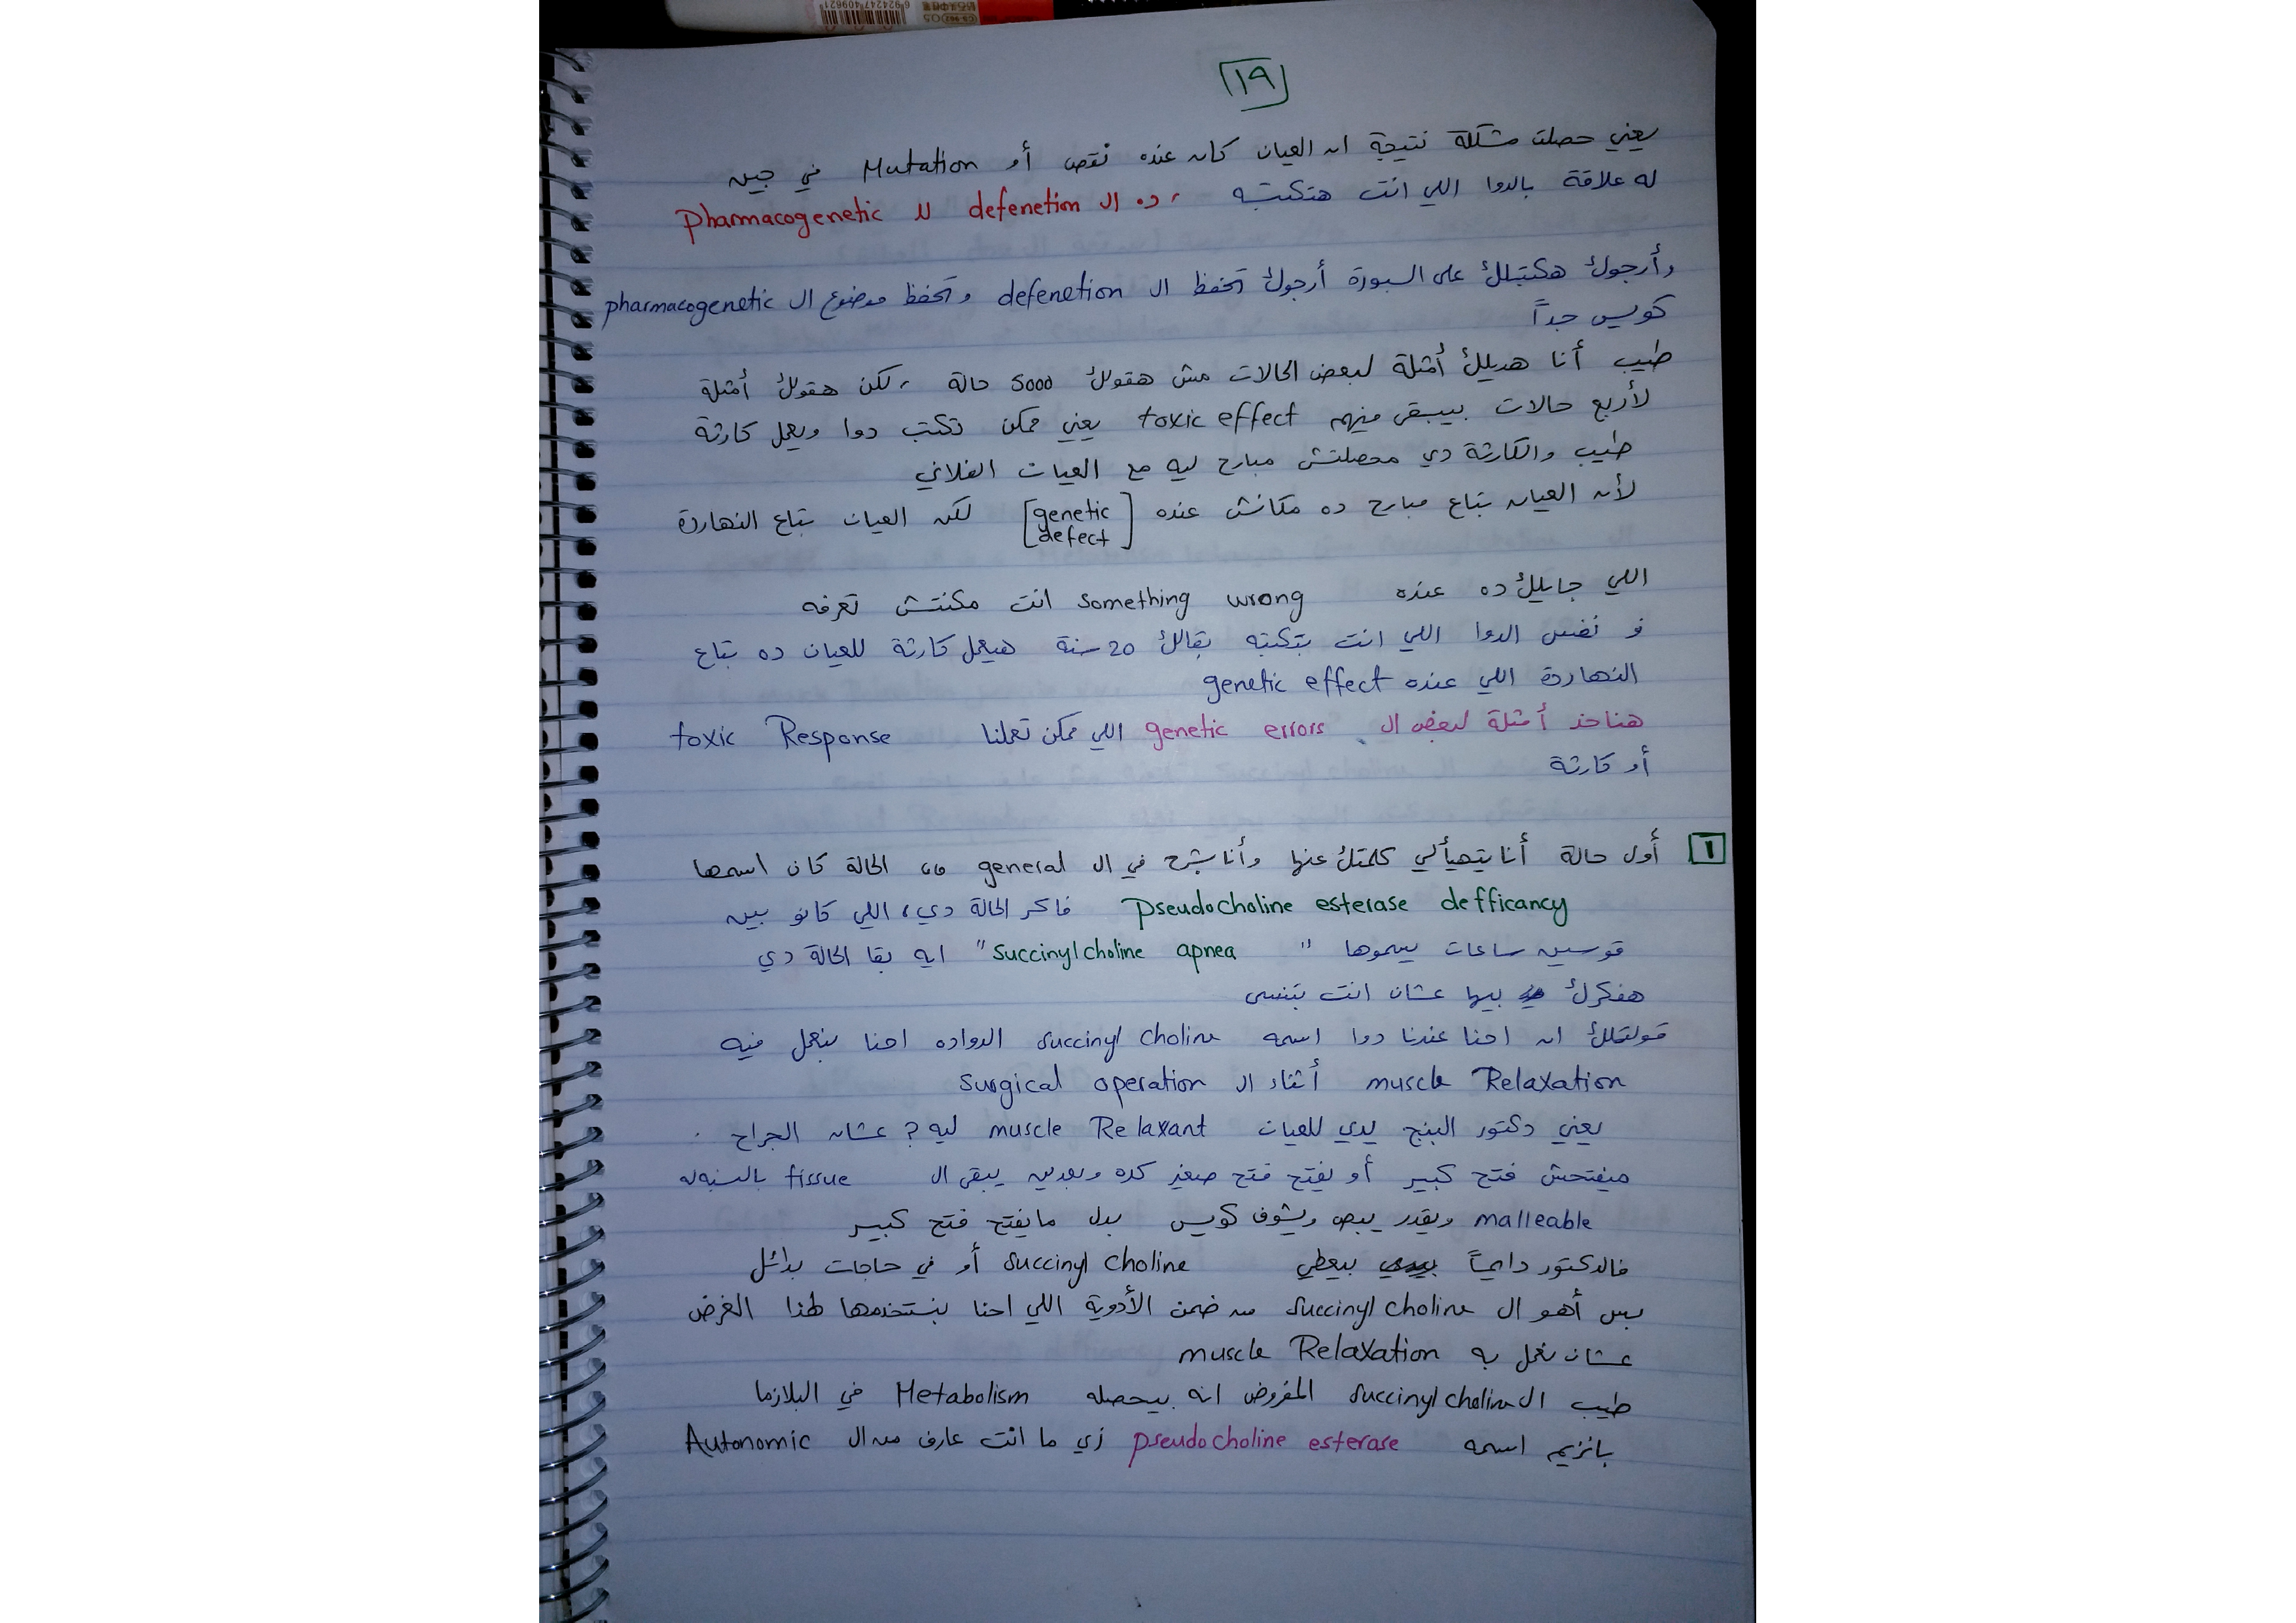 ١٩
يعني حصلت مشكلة نتيجة ان العيان كان عنده نقص أو Mutation في جين
له علاقة بالدوا اللي انت هتكتبه ، ده ال defenetion لل Pharmacogenetic
وأرجوك هكتبلك على السبورة أرجوك تحفظ ال defenetion وتحفظ موضوع ال pharmacogenetic
كويس جداً
طيب أنا هديلك أمثلة لبعض الحالات مش هقولك 5000 حالة ، لكن هقولك أمثلة
لأربع حالات بيبقى فيهم toxic effect يعني ممكن تكتب دوا ويعمل كارثة
طيب والكارثة دي محصلتش مبارح ليه مع العيان الفلاني
لأن العيان بتاع مبارح ده مكانش عنده [genetic defect] لكن العيان بتاع النهاردة
اللي جايلك ده عنده something wrong انت مكنتش تعرفه
ف نفس الدوا اللي انت بتكتبه بقالك 20 سنة هيعمل كارثة للعيان ده بتاع
النهاردة اللي عنده genetic effect
هناخد أمثلة لبعض ال genetic errors اللي ممكن تعملنا toxic Response
أو كارثة
1 أول حالة أنا يتهيألي كلمتك عنها وأنا بشرح في ال general ،، الحالة كان اسمها
Pseudocholine esterase defficancy فاكر الحالة دي، اللي كانو بين
قوسين ساعات يسموها " Succinylcholine apnea " ايه بقا الحالة دي
هفكرك بيها عشان انت بتنسى
قولتلك ان احنا عندنا دوا اسمه succinyl choline الدواده احنا بنعمل فيه
muscle Relaxation أثناء ال surgical operation
يعني دكتور البنج يدي للعيان muscle Relaxant ليه ? عشان الجراح
ميفتحش فتح كبير أو يفتح فتح صغير كده وبعدين يبقى ال tissue بالنسبةله
malleable ويقدر يبص ويشوف كويس بدل مايفتح فتح كبير
فالدكتور دايماً بيعطي succinyl choline أو في حاجات بدائل
بس أهو ال succinyl choline من ضمن الأدوية اللي احنا بنستخدمها لهذا الغرض
عشان نعمل به muscle Relaxation
طيب ال succinyl choline المفروض انه بيحصله Metabolism في البلازما
بانزيم اسمه pseudocholine esterase زي ما انت عارف من ال Autonomic